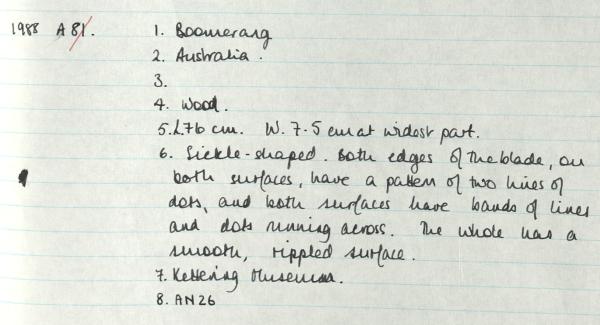 1988 A 81. 1. Boomerang
2. Australia.
3.
4. Wood.
5. L.76 cm. W. 7.5 cm at widest part.
6. Sickle-shaped. Both edges of the blade, on
both surfaces, have a pattern of two lines of
dots, and both surfaces have bands of lines
and dots running across. The whole has a
smooth, rippled surface.
7. Kettering Museum.
8. AN26